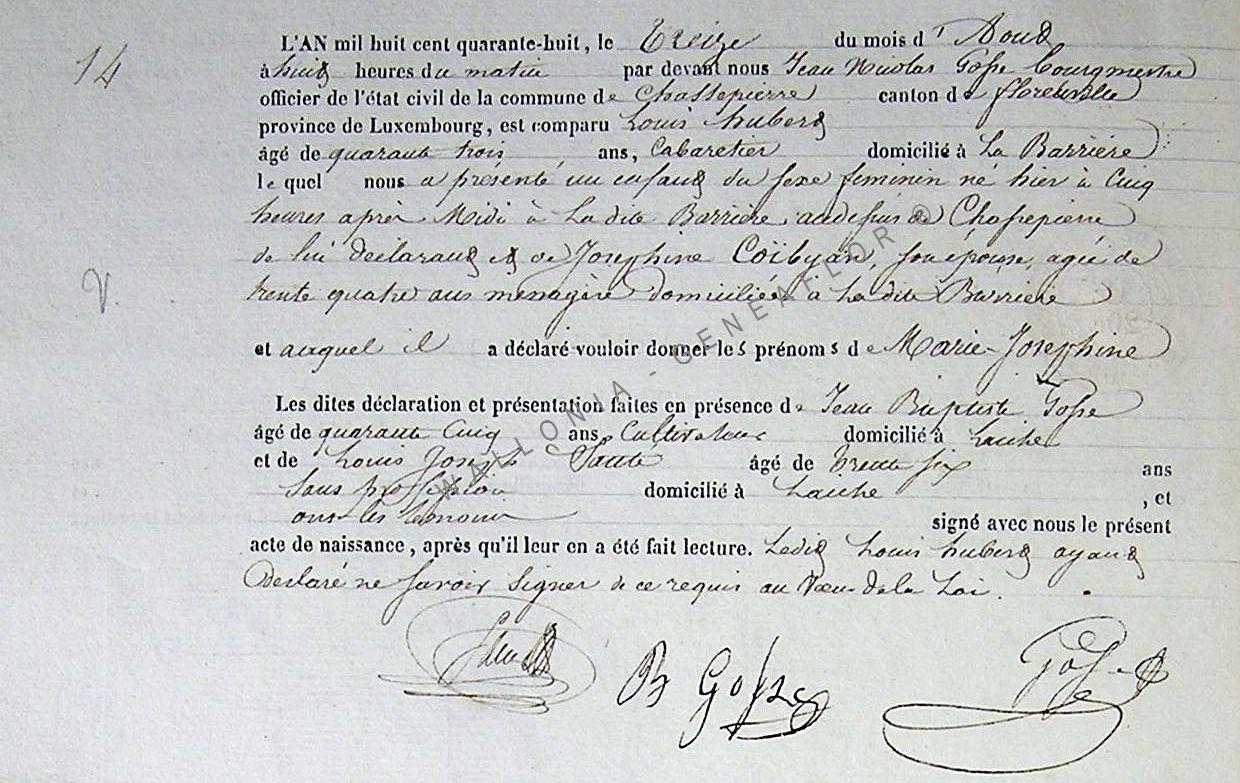 14
L'AN mil huit cent quarante-huit, le Treize du mois d'Aout
à huit heures du matin par devant nous Jean Nicolas Gosse Bourgmestre
officier de l'état civil de la commune de Chassepierre canton de florenville
province de Luxembourg, est comparu Louis hubert
âgé de quarante trois ans, Cabaretier domicilié à La Barrière
le quel nous a présenté un enfant du sexe feminin né hier à Cinq
heures après Midi à La dite Barrière audessus de Chassepierre
de lui déclarant et de Josephine Coïbyan, son épouse, agée de
trente quatre ans ménagère domiciliée à La dite Barrière
V.
et auquel il a déclaré vouloir donner les prénoms de Marie-Josephine
Les dites déclaration et présentation faites en présence de Jean Baptiste Gosse
âgé de quarante Cinq ans Cultivateur domicilié à Laiche
et de Louis Joseph Santé âgé de trente six ans
Sans profession domicilié à Laiche , et
ont les temoins signé avec nous le présent
acte de naissance, après qu'il leur en a été fait lecture. Ledit Louis hubert ayant
Declaré ne Savoir Signer de ce requis au Vœu de la Loi.
B Gosse
Gosse
WALLONIA - GENEAFLOR ©